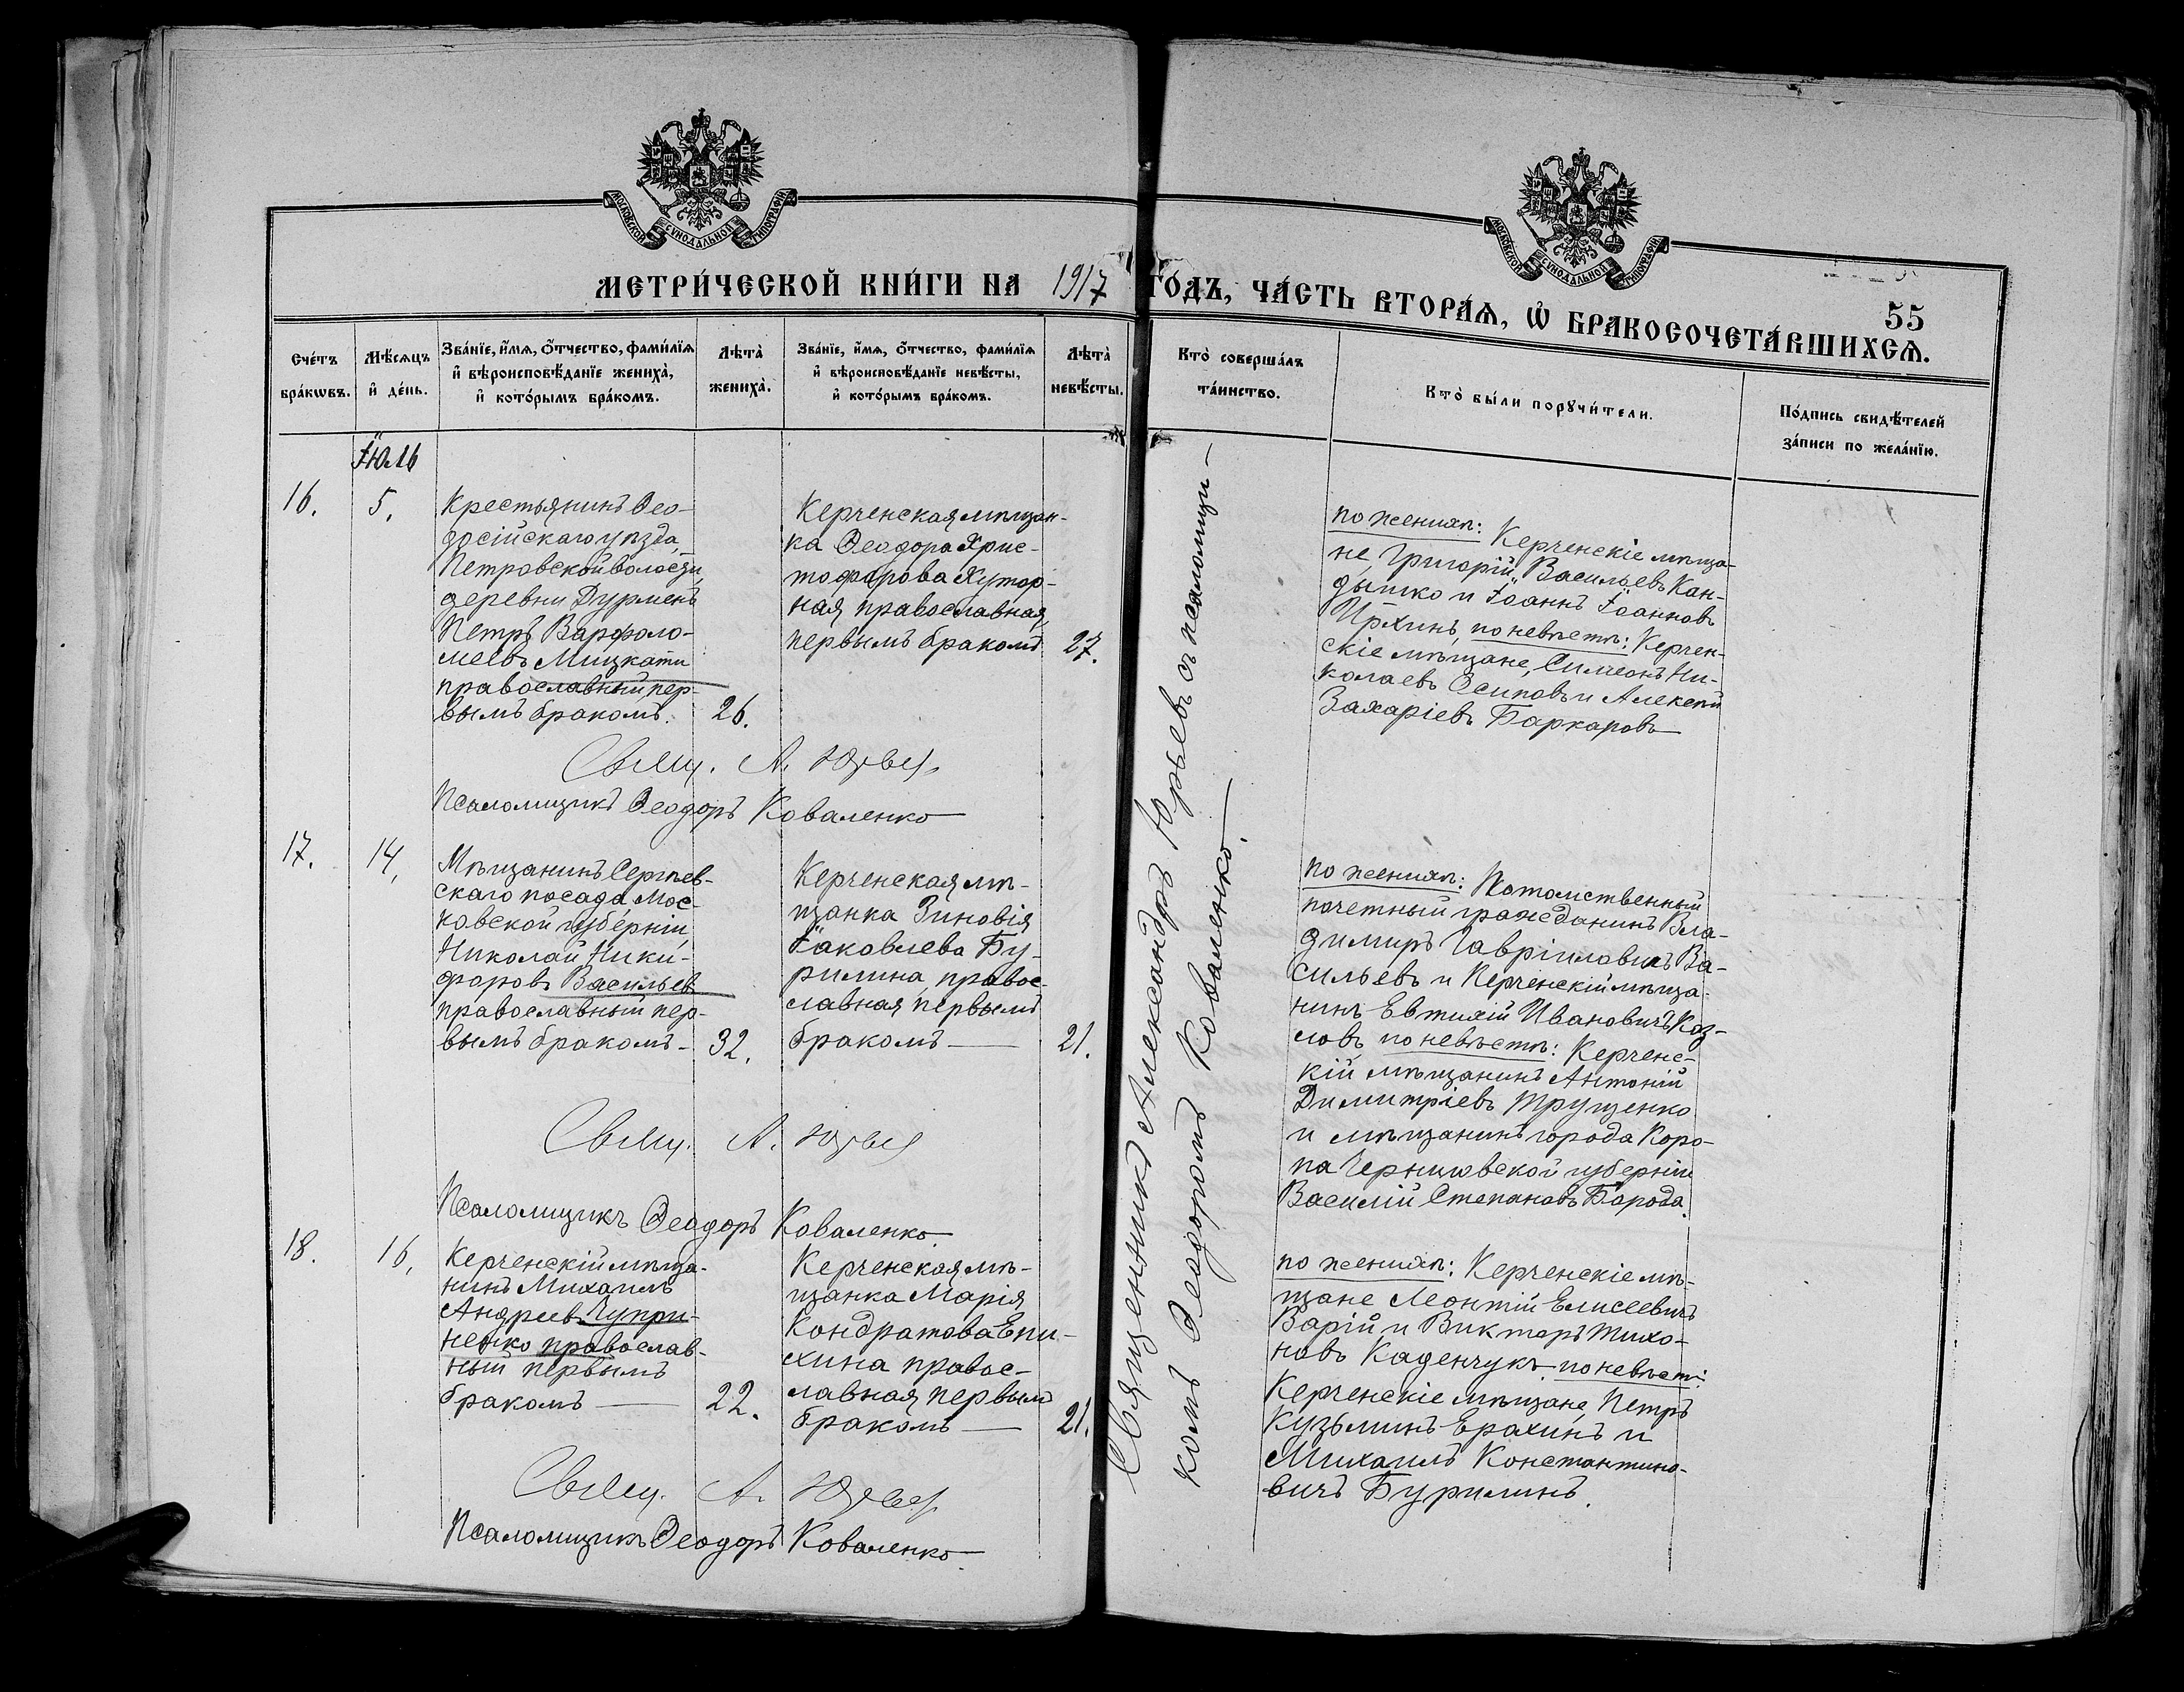 МОСКОВСКОЙ СѴНОДАЛЬНОЙ ТИПОГРАФІИ
МОСКОВСКОЙ СѴНОДАЛЬНОЙ ТИПОГРАФІИ
МЕТРИ́ЧЕСКОЙ КНИ́ГИ НА 1917 ГО́ДЪ, ЧА́СТЬ ВТОРА́Ѧ, Ѡ҆ БРАКОСОЧЕТА́ВШИХСѦ.
55
Сче́тъ
бра́кѡвъ.
Мѣ́сѧцъ
и҆ де́нь.
Зва́нїе, и҆́мѧ, ѻ҆́тчество, фами́лїѧ
и҆ вѣроисповѣ́данїе жениха̀,
и҆ кото́рымъ бра́комъ.
Лѣта̀
жениха̀.
Зва́нїе, и҆́мѧ, ѻ҆́тчество, фами́лїѧ
и҆ вѣроисповѣ́данїе невѣ́сты,
и҆ кото́рымъ бра́комъ.
Лѣта̀
невѣ́сты.
Кто̀ соверша́лъ
та́инство.
Кто̀ бы́ли порꙋчи́тели.
По́дпись свидѣ́телей
за́писи по жела́нїю.
Іюль
16.
5.
Крестьянинъ Ѳео-
досійскаго уѣзда,
Петровской волости,
деревни Дурменъ
Петръ Варфоло-
меевъ Мицкати
православный пер-
вымъ бракомъ.
26.
Керченская мѣщан-
ка Ѳеодора Хрис-
тофорова Хутор-
ная православная,
первымъ бракомъ
27.
по женихѣ: Керченскіе мѣща-
не, Григорій Васильевъ Кан-
дышко и Іоаннъ Іоанновъ
Ирхинъ, по невѣстѣ: Керчен-
скіе мѣщане, Симеонъ Ни-
колаевъ Осиповъ и Алексѣй
Захаріевъ Баркаровъ
Свящ. А. Юрьев
Псаломщикъ Ѳеодоръ Коваленко
17.
14.
Мѣщанинъ Сергіев-
скаго посада Мос-
ковской губерніи,
Николай Ники-
форовъ Васильевъ
православный пер-
вымъ бракомъ
32.
Керченская мѣ-
щанка Зиновія
Іаковлева Бу-
рилина, правос-
славная, первымъ
бракомъ
21.
по женихѣ: Потомственный
почетный гражданинъ Вла-
димиръ Гавріиловичъ Ва-
сильевъ и Керченскій мѣща-
нинъ Евтихій Ивановичъ Коз-
ловъ, по невѣстѣ: Керченс-
кій мѣщанинъ Антоній
Димитріевъ Трущенко
и мѣщанинъ города Коро-
па Черниговской губерніи
Василій Степановъ Борода.
Свящ. А. Юрьев
Псаломщикъ Ѳеодоръ Коваленко.
18.
16.
Керченскій мѣща-
нинъ Михаилъ
Андреевъ Чупри-
ненко православ-
ный первымъ
бракомъ
22.
Керченская мѣ-
щанка Марія
Кондратова Епи-
хина правос-
лавная, первымъ
бракомъ
21.
по женихѣ: Керченскіе мѣ-
щане Леонтій Елисеевичъ
Варій и Викторъ Тихо-
новъ Каденчукъ, по невѣстѣ:
Керченскіе мѣщане, Петръ
Кузьминъ Ерахинъ и
Михаилъ Константино-
вичъ Бурилинъ.
Свящ. А. Юрьев
Псаломщикъ Ѳеодоръ Коваленко.
Священникъ Александръ Юрьевъ съ псаломщи-
комъ Ѳеодоромъ Коваленко.